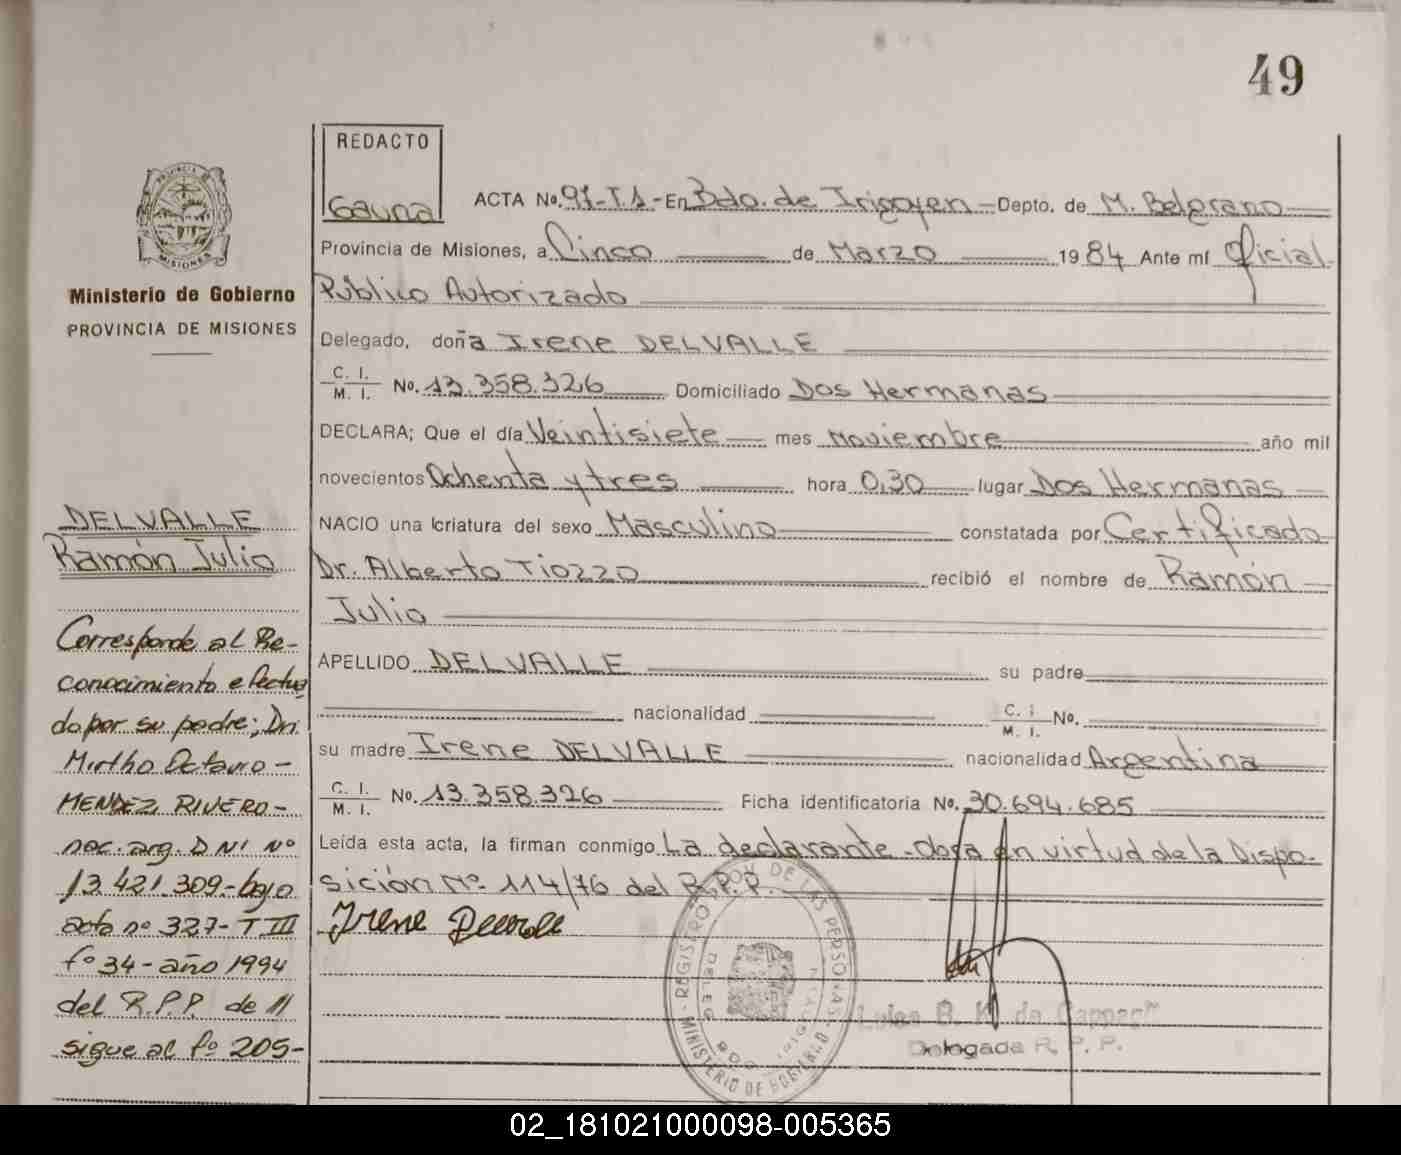 49
REDACTO
Gauna
ACTA No. 91-T.1- En Bdo. de Irigoyen - Depto. de M. Belgrano
Provincia de Misiones, a Cinco de Marzo 1984 Ante mí Oficial
Público Autorizado
Delegado, doña Irene DELVALLE
C. I. M. I. No. 13.358.326 Domiciliado Dos Hermanas
DECLARA; Que el día Veintisiete mes Noviembre año mil
novecientos Ochenta y tres hora 0,30 lugar Dos Hermanas
NACIO una criatura del sexo Masculino constatada por Certificado
Dr. Alberto Tiozzo recibió el nombre de Ramón
Julio
APELLIDO DELVALLE su padre
nacionalidad C. I. M. I. No.
su madre Irene DELVALLE nacionalidad Argentina
C. I. M. I. No. 13.358.326 Ficha identificatoria No. 30.694.685
Leída esta acta, la firman conmigo La declarante - Obra en virtud de la Dispo-
sición Nº 114/76 del R.P.P.
Irene
REGISTRO DE LAS PERSONAS
MINISTERIO DE GOBIERNO
Luisa B. de
Delegada R. P. P.
PROVINCIA DE
MISIONES
Ministerio de Gobierno
PROVINCIA DE MISIONES
DELVALLE
Ramón Julio
Corresponde al Re-
conocimiento efectua
do por su padre; Dn.
Mirtho Octavio -
MENDEZ RIVERO -
nac. arg. DNI Nº
13.421.309 - bajo
acta nº 327 - T III
fº 34 - año 1994
del R.P.P. de 11
sigue al fº 205 -
02_181021000098-005365